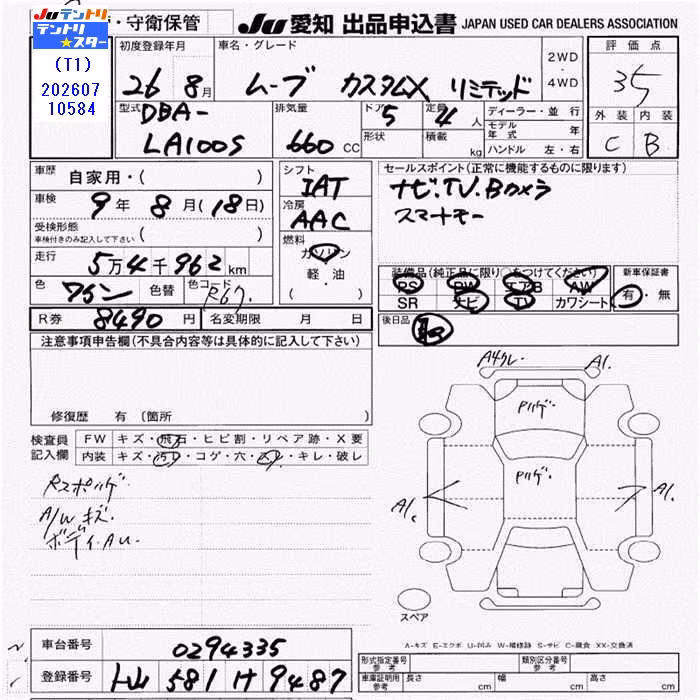 JU テントリ
テントリ★スター
(T1)
202607
10584
・守衛保管
JU 愛知 出品申込書 JAPAN USED CAR DEALERS ASSOCIATION
初度登録年月
26 8月
車名・グレード
ムーブ カスタムX リミテッド
2WD
・
4WD
評価点
3.5
外装 内装
C B
型式
DBA-
LA100S
排気量
660 cc
ドア
5
定員
4 人
形状
積載
kg
ディーラー・並行
モデル年式 年
ハンドル 左・右
車歴 自家用・( )
車検 9年 8月(18日)
受検形態
車検付きのみ記入して下さい ( )
走行 5万4千962km
色 ワイン 色替 色コード R67
シフト
IAT
冷房
AAC
燃料
ガソリン
軽・油
( )
セールスポイント(正常に機能するものに限ります)
ナビ.TV.Bカメラ
スマートキー
装備品(純正品に限り○をつけてください)
PS PW エアB AW
SR ナビ TV カワシート
新車保証書
有・無
後日品
R券 8490 円 名変期限 月 日
注意事項申告欄(不具合内容等は具体的に記入して下さい)
修復歴 有(箇所 )
検査員
記入欄
FW キズ・飛石・ヒビ割・リペア跡・X要
内装 キズ・汚レ・コゲ・穴・スレ・キレ・破レ
Rスポハゲ
A/Wキズ.
ボディAU.
A4クレ・
A1.
Pハゲ.
Pハゲ.
A1.
A1.
スペア
A-キズ E-エクボ U-凹み W-補修跡 S-サビ C-腐食 XX-交換済
車台番号 0294335
登録番号 581 9487
形式指定番号
参考
類別区分番号
参考
車庫証明用
参考
長さ cm 幅 cm 高さ cm